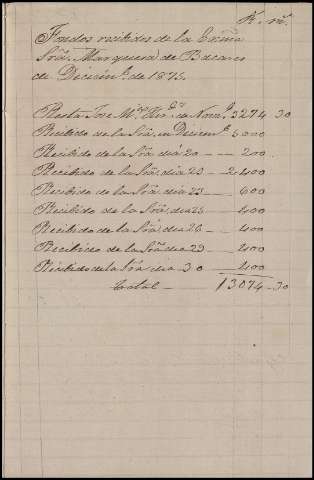 R. vn.
Fondos recibidos de la Exma
Sra. Marquesa de Bacares
de Diciembe. de 1875.
Resta Jose Ma. de Nove. 3274 30
Recibido de la Sra. en Diciembe. 5000
Recibido de la Sra. dia 20 — — 200.
Recibido de la Sra. dia 23 — 2400
Recibido de la Sra. dia 23 — 600
Recibido de la Sra. dia 25 — 400
Recibido de la Sra. dia 26 — 400
Recibido de la Sra. dia 29 — 400
Recibido de la Sra. dia 30 — 400
Total — 13074 — 30